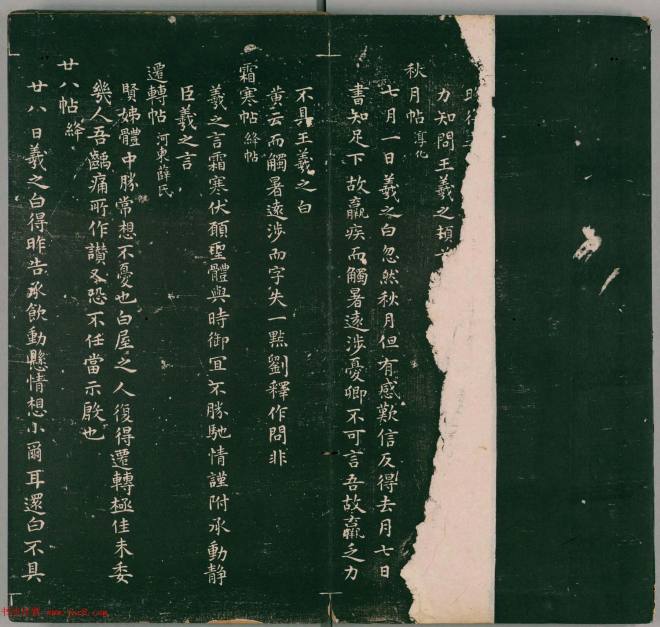 力知問王羲之頓
秋月帖 淳化
七月一日羲之白忽然秋月但有感歎信反得去月七日
書知足下故羸疾而觸暑遠涉憂卿不可言吾故羸乏力
不具王羲之白
黃云而觸暑遠涉而字失一點劉釋作問非
霜寒帖 絳帖
羲之言霜寒伏願聖體與時御宜不勝馳情謹附承動靜
臣羲之言
遷轉帖 河東薛氏
賢姊體中勝常想不憂也白屋之人復得遷轉極佳未委
幾人吾齲痛所作讃又恐不任當示啟也
廿八帖 絳
廿八日羲之白得昨告承飲動懸情想小爾耳還白不具